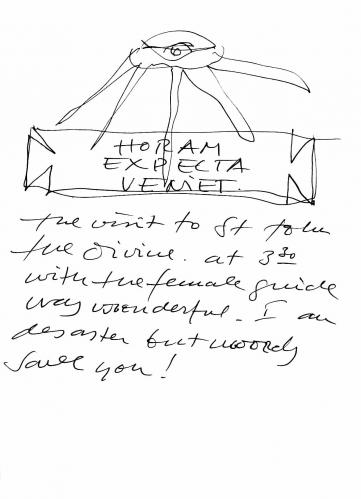 HORAM
EXPECTA
VENIET.
the visit to St John
the Divine. at 3 30
with the female guide
was wonderful. I am
desaster but words
save you!